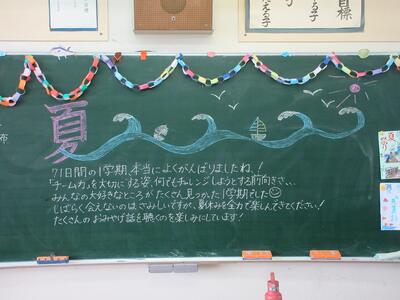 目標
える子
夏
71日間の1学期、本当によくがんばりましたね!
「チーム力」を大切にする姿、何でもチャレンジしようとする前向きさ、、、
みんなの大好きなところがたくさん見つかった1学期でした
しばらく会えないのはさみしいですが、夏休みを全力で楽しんできてください!
たくさんのおみやげ話を聴くのを楽しみにしています!